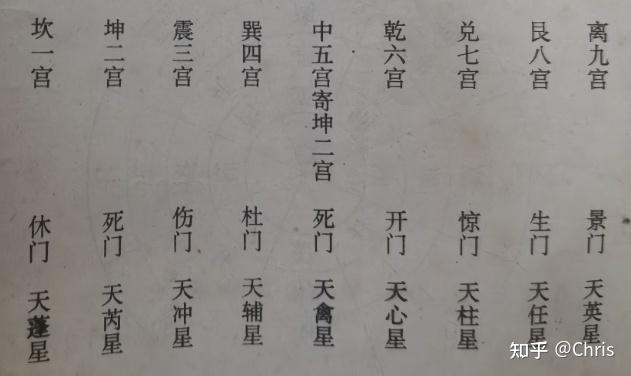 坎一宫 休门 天蓬星
坤二宫 死门 天芮星
震三宫 伤门 天冲星
巽四宫 杜门 天辅星
中五宫寄坤二宫 死门 天禽星
乾六宫 开门 天心星
兑七宫 惊门 天柱星
艮八宫 生门 天任星
离九宫 景门 天英星
知乎 @Chris